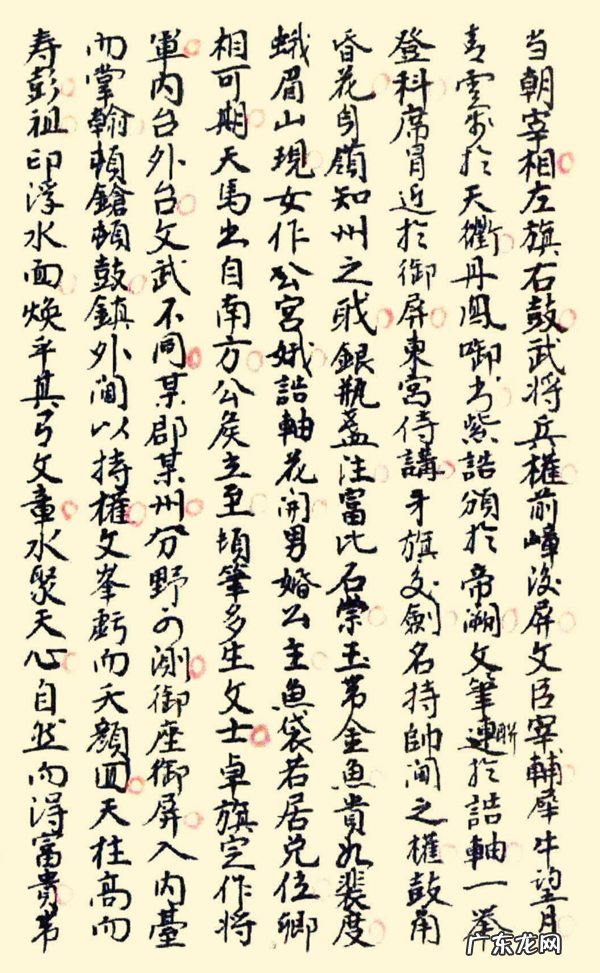 当朝宰相左旗右鼓武将兵權前嶂後屏文臣宰輔犀牛望月
青雲步於天衢丹鳳啣书紫誥頒於帝澜文筆連聯於誥軸一舉
登科席冐近於御屏東宮侍講牙旗交劍名持帥閫之權鼓角
昏花旬嶺知州之职銀瓶盞注富比石崇玉带金魚貴如裴度
蛾眉山現女作公宮娥誥軸花開男婚公主魚袋若居兑位卿
相可期天馬出自南方公矦立至頓筆多生文士卓旗定作将
軍内台外台文武不同某郡某州分野可测御座御屏入内臺
而掌翰頓鎗頓鼓鎮外閫以持權文峯虧而夭顏回天柱高而
寿彭祖印浮水面焕乎其弓文章水聚天心自然而得富貴第
广东龙网